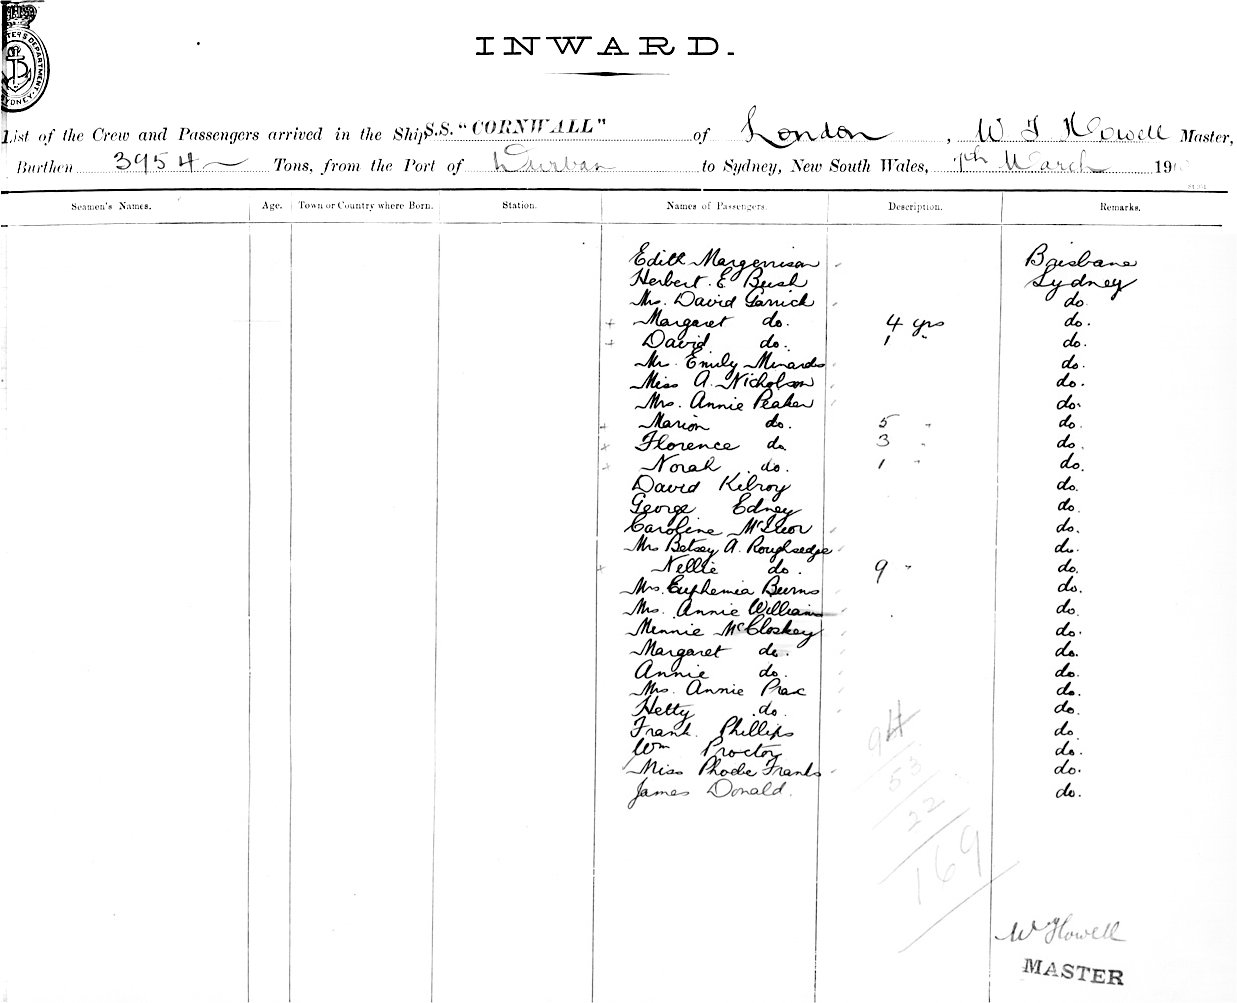 INWARD.
List of the Crew and Passengers arrived in the Ship S.S. "CORNWALL" of London, W J Howell Master,
Burthen 3954 Tons, from the Port of Durban to Sydney, New South Wales, 7th March 190
Seamen's Names. Age. Town or Country where Born. Station. Names of Passengers. Description. Remarks.
Edith Margerrison Brisbane
Herbert. E Bush Sydney
Mrs. David Garrick do.
+ Margaret do. 4 yrs do.
+ David do. 1 " do.
Mrs. Emily Minards do.
Miss A. Nicholson do.
Mrs. Annie Peaker do.
+ Marion do. 5 " do.
+ Florence do. 3 " do.
+ Norah do. 1 " do.
David Kilroy do.
George Edney do.
Caroline do.
Mrs Betsey A. Roughsedge do.
+ Nellie do. 9 " do.
Mrs. Euphemia Burns do.
Mrs. Annie Williams do.
Minnie McCloskey do.
Margaret do. do.
Annie do. do.
Mrs. Annie do.
Hetty do. do.
Frank Phillips do.
Wm Proctor do.
Miss Phoebe Franks do.
James Donald. do.
94
53
22
169
W Howell
MASTER